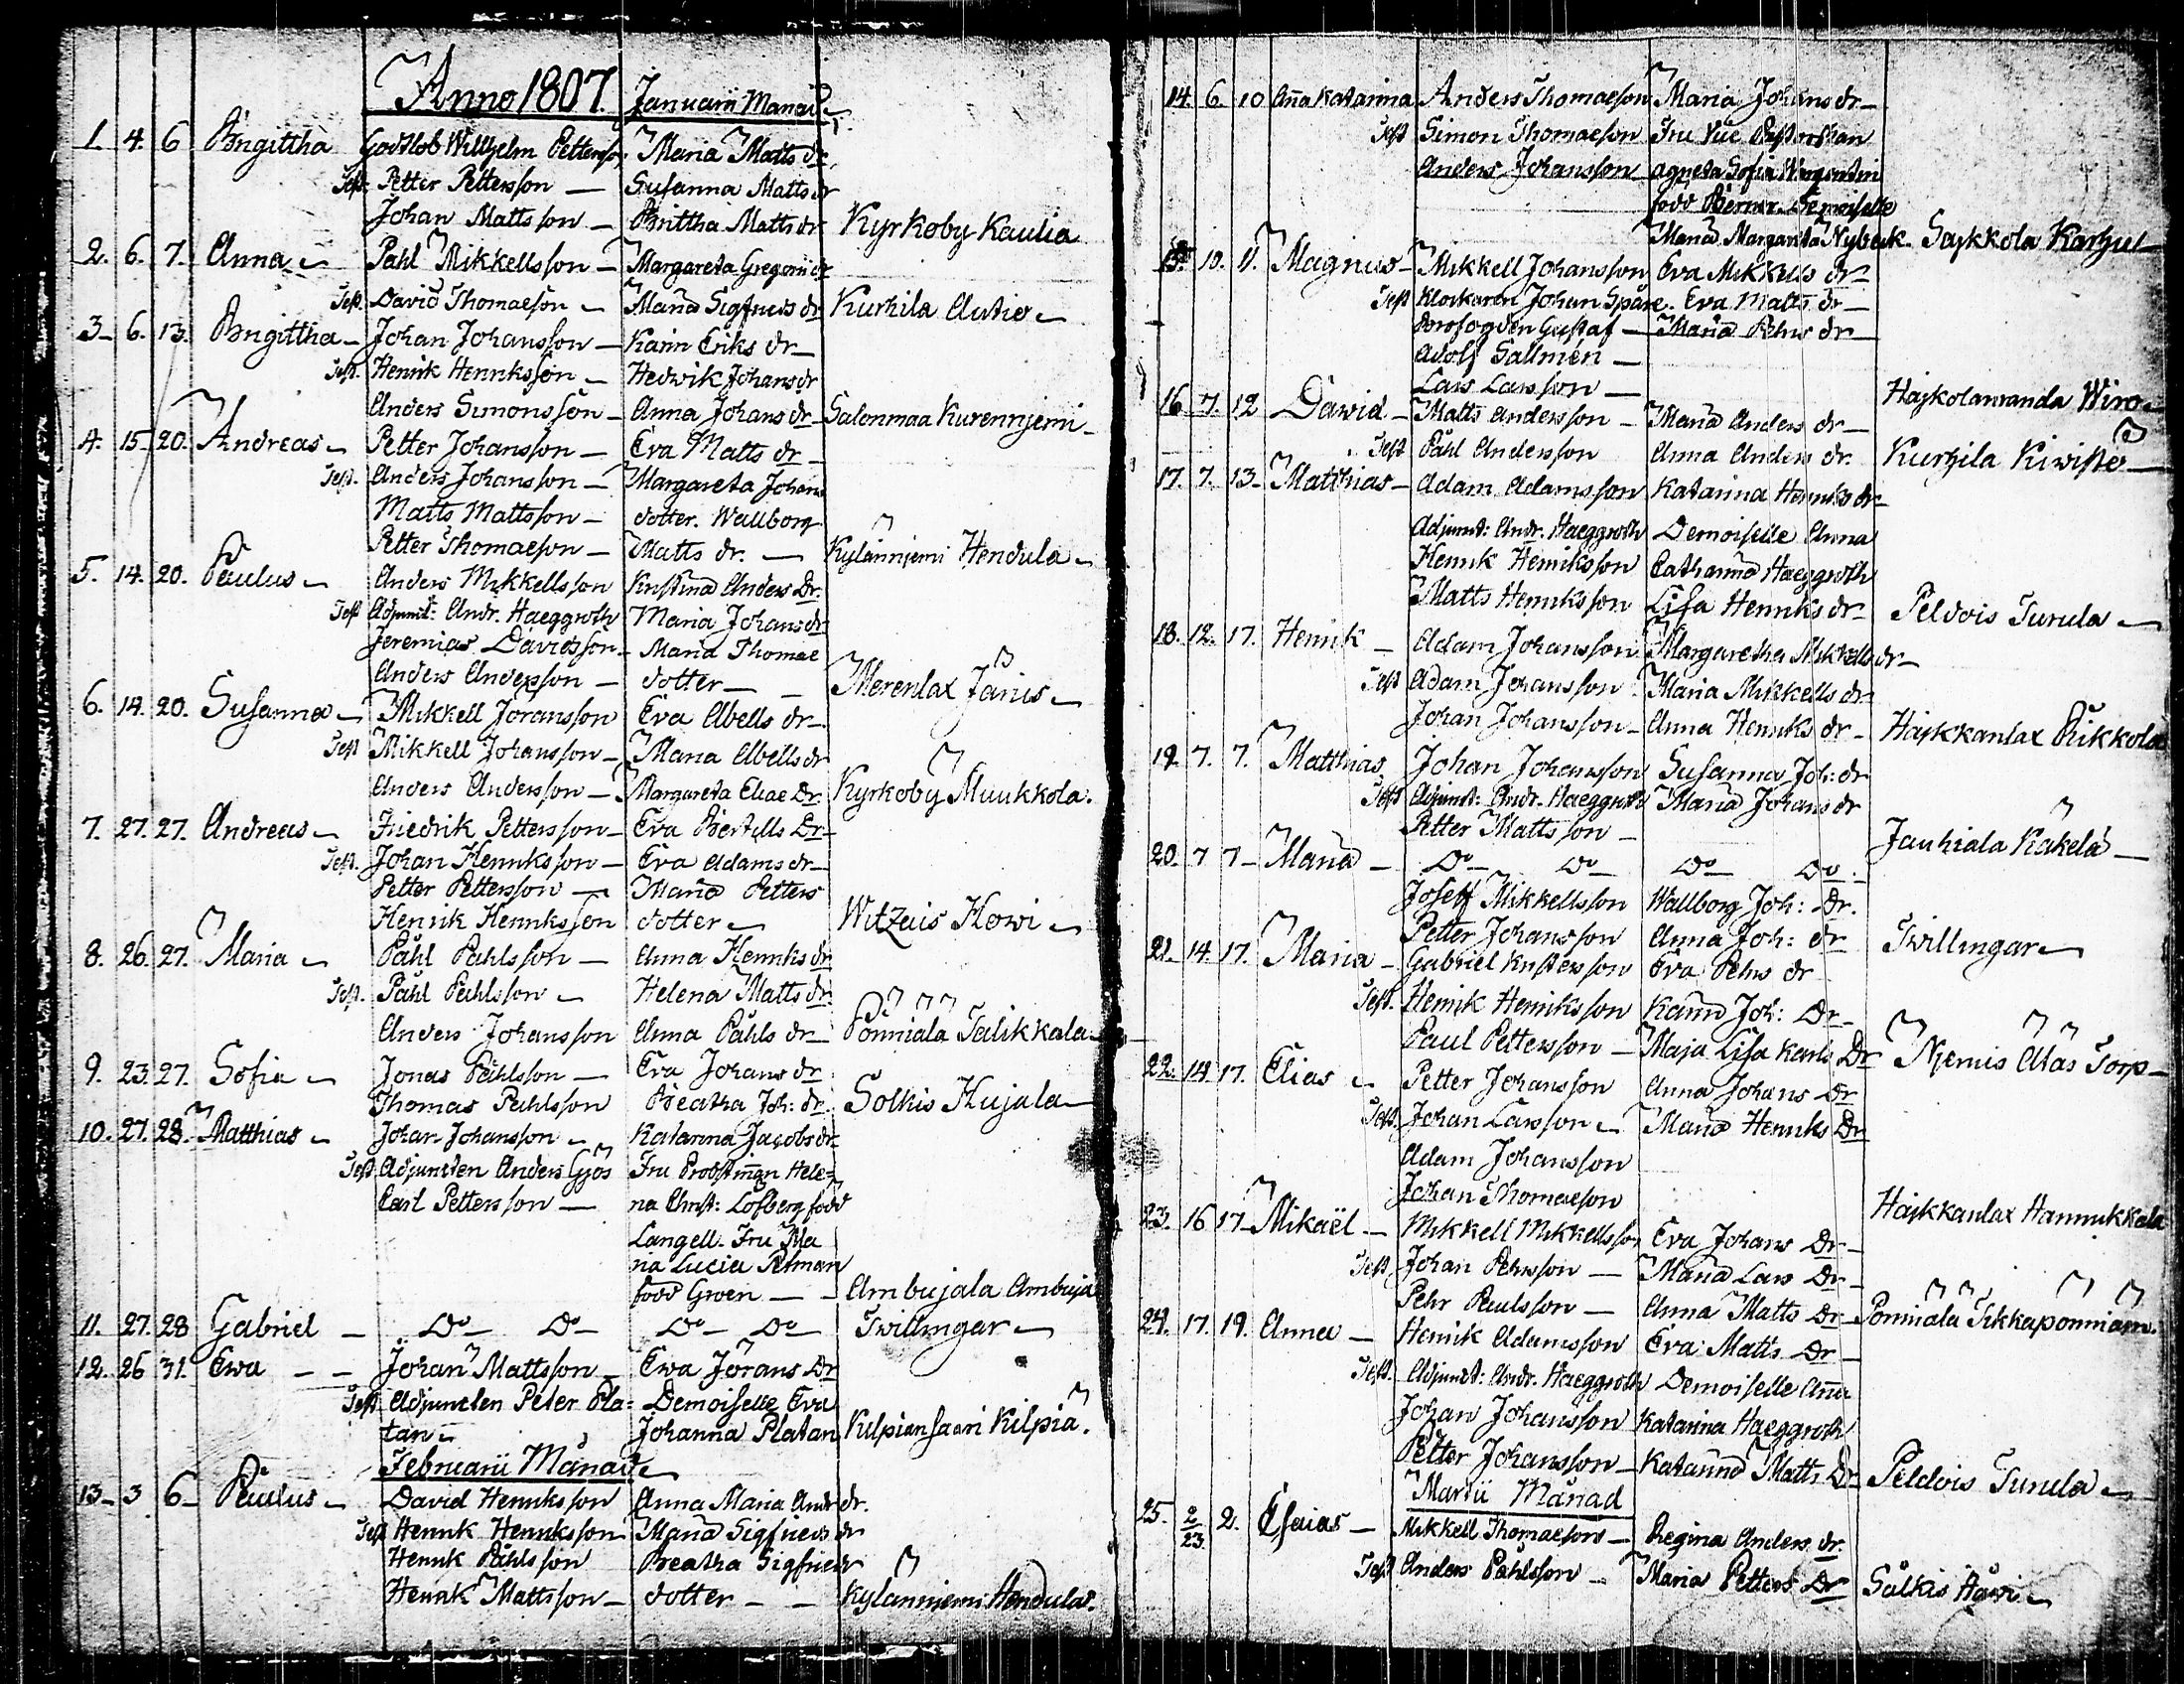 Anno 1807. Januarii Månad
1. 4. 6 Brigittha Godtlob Willhelm Pettersson Maria Matts dr
Test. Petter Pettersson — Susanna Matts dr
Johan Mattsson — Brittha Matts dr Kyrkoby Kaulia
2. 6. 7. Anna Påhl Mikkellsson — Margareta Gregorii dr
Test. David Thomaeson — Maria Sigfrieds dr Kurhila Autio
3. 6. 13. Brigittha Johan Johansson — Karin Eriks dr
Test. Henrik Henriksson — Hedwik Johans dr
Anders Simonsson — Anna Johans dr Salonmaa Kurennjemi
4. 15. 20. Andreas Petter Johansson — Eva Matts dr
Test. Anders Johansson — Margareta Johans
Matts Mattsson — dotter. Wallborg
Petter Thomaeson — Matts dr. — Kylänniemi Hendula
5. 14. 20. Paulus Anders Mikkellsson Kristina Anders Dr.
Test Adjunct: Andr. Haeggroth Maria Johans dr
Jeremias Davidsson — Maria Thomae
Anders Andersson — dotter — Merenlax Janis
6. 14. 20. Susanna Mikkell Joransson Eva Abells dr
Test Mikkell Johansson — Maria Abells dr
Anders Andersson — Margareta Eliae Dr. Kyrkoby Muukkola.
7. 27. 27. Andreas Friedrik Pettersson — Eva Bertills Dr
Test. Johan Henriksson — Eva Adams dr
Petter Pettersson — Maria Petters
Henrik Henriksson dotter Witzais Howi
8. 26. 27. Maria Påhl Pahlsson — Anna Henriks dr
Test. Påhl Pahlsson Helena Matts dr
Anders Johansson Anna Påhls dr Pönniälä Talikkala
9. 23. 27. Sofia Jonas Påhlsson — Eva Johans dr
Thomas Pahlsson Beatha Joh: dr. Solkis Kujala
10. 27. 28. Matthias Johan Johansson Katarina Jacobs dr
Test. Adjuncten Anders Gjös Fru Probstinnan Hele=
Carl Pettersson — na Christ: Löfberg född
Langell. Fru Ma
ria Lucia Polman
född Groen — Ambujala Ambuja
11. 27. 28 Gabriel — Do Do Do Do Twillingar
12. 26 31. Ewa — Johan Mattsson — Ewa Jörans Dr
Test Adjuncten Peter Pla= Demoiselle Eva
tan Johanna Platan Kilpiansaari Kilpiä.
Februarii Månad
13. 3 6 Paulus David Henriksson Anna Maria Andr dr.
Test Henrik Henriksson Maria Sigfrieds dr
Henrik Påhlsson Breatha Sigfrieds
Henrik Mattsson — dotter — Kylänniemi Hendula.
14. 6. 10 Aña Katarina Anders Thomaeson Maria Johans dr
Test Simon Thomaeson Fru Vice Pastorskan
Anders Johansson Agneta Sofia Wargentin
född Berner. Demoiselle
Maria Margareta Nybeck. Sajkkola Karhu
15. 10. 11. Magnus Mikkell Johansson Eva Mikkells dr
Test Klockaren Johan Spåre. Eva Matts dr
Brofogden Gustaf — Maria Pehrs dr
Adolf Sallmén —
Lars Larsson — Hajkolanranda Wiro
16. 7. 12 Dawid Matts Andersson — Maria Anders dr
Test Påhl Andersson Anna Anders dr. Kurhila Kiwistö
17. 7. 13. Matthias Adam Adamsson Katarina Henriks dr
Adjunct: Andr. Haeggroth Demoiselle Anna
Henrik Henriksson Catharina Haeggroth
Matts Henriksson Lisa Henriks dr Peldois Turula
18. 12. 17. Henrik — Adam Johansson Margaretha Mikkells dr
Test Adam Johansson Maria Mikkells dr
Johan Johansson Anna Henriks dr Hajkkanlax Pukkola
19. 7. 7. Matthias Johan Johansson Susanna Joh: dr
Test Adjunct: Andr. Haeggroth Maria Johans dr
Petter Mattsson — Jauhiala Käkelä
20. 7 7 Maria — Do Do Do Do
Josef Mikkellsson Wallborg Joh: Dr.
Petter Johansson Anna Joh: dr Twillingar
21. 14. 17. Maria Gabriel Kristersson Eva Pehrs dr
Test. Henrik Henriksson Karin Joh: Dr
Paul Pettersson — Maja Lisa Karls Dr Njemis Alas Torp
22. 14. 17. Elias Petter Johansson Anna Johans Dr
Test. Johan Larsson Maria Henriks Dr
Adam Johansson
Johan Thomaeson Hajkkanlax Hannukkala
23. 16 17 Mikaël — Mikkell Mikkellsson Eva Johans Dr
Test Johan Pehrsson — Maria Lars Dr
Pehr Paulsson — Anna Matts Dr Pönniälä Tikkapönniäin.
24. 17. 19. Anna — Henrik Adamsson Eva Matts Dr
Test. Adjunct: Andr. Haeggroth Demoiselle Aña
Johan Johansson Katarina Haeggroth
Petter Johansson — Katarina Matts Dr Peldois Turula
Martii Månad
25. 2/23. 2. Esaias — Mikkell Thomaeson — Regina Anders dr.
Test Anders Påhlsson — Maria Petters Dr Sälkis Häwi